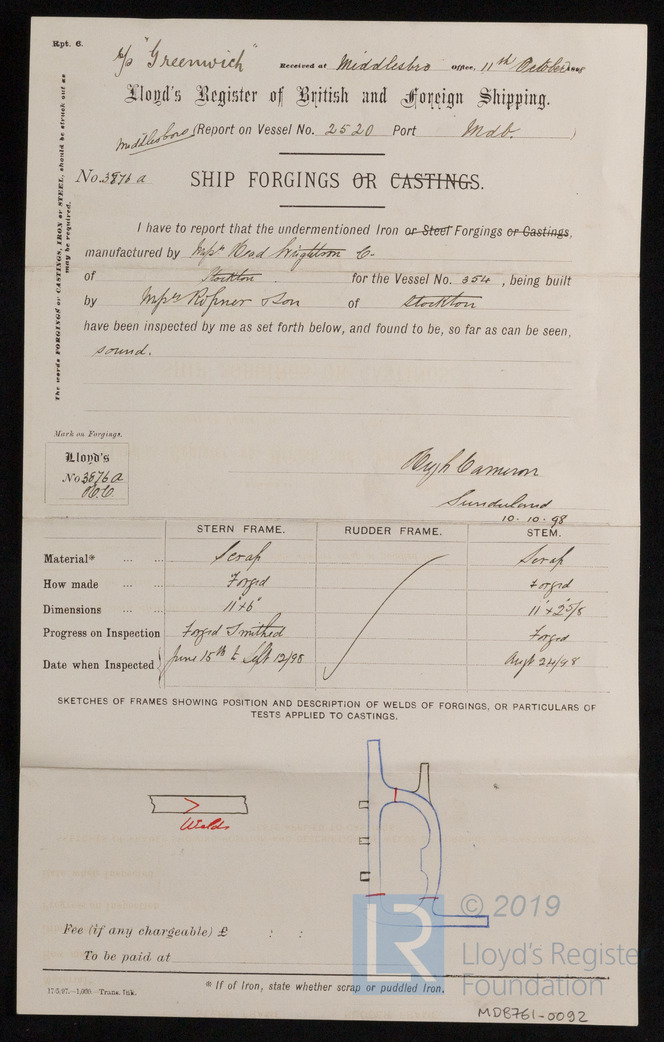 Rpt. 6.
S/S "Greenwich" Received at Middlesbro Office, 11th October 1898
Lloyd's Register of British and Foreign Shipping.
Middlesboro (Report on Vessel No. 2520 Port Mdb. )
No. 3876a SHIP FORGINGS OR CASTINGS.
The words FORGINGS or CASTINGS, IRON or STEEL, should be struck out as
may be required.
I have to report that the undermentioned Iron or Steel Forgings or Castings,
manufactured by Messrs Head Wrightson & Co.
of Stockton for the Vessel No. 354, being built
by Messrs Ropner & Son of Stockton
have been inspected by me as set forth below, and found to be, so far as can be seen,
sound.
Mark on Forgings.
Lloyd's
No 3876a
H.C.
Hugh Cameron
Sunderland
10.10.98
STERN FRAME. RUDDER FRAME. STEM.
Material* ... ... Scrap Scrap
How made ... ... Forged Forged
Dimensions ... ... 11"×6" 11"×2 5/8
Progress on Inspection Forged Smithed Forged
Date when Inspected June 15th to Sept 12/98 Augt 24/98
SKETCHES OF FRAMES SHOWING POSITION AND DESCRIPTION OF WELDS OF FORGINGS, OR PARTICULARS OF
TESTS APPLIED TO CASTINGS.
Welds
Fee (if any chargeable) £ : :
To be paid at
* If of Iron, state whether scrap or puddled Iron.
17/5/97.—1,000.—Trans. Ink.
LR
© 2019
Lloyd's Register
Foundation
MDB761-0092